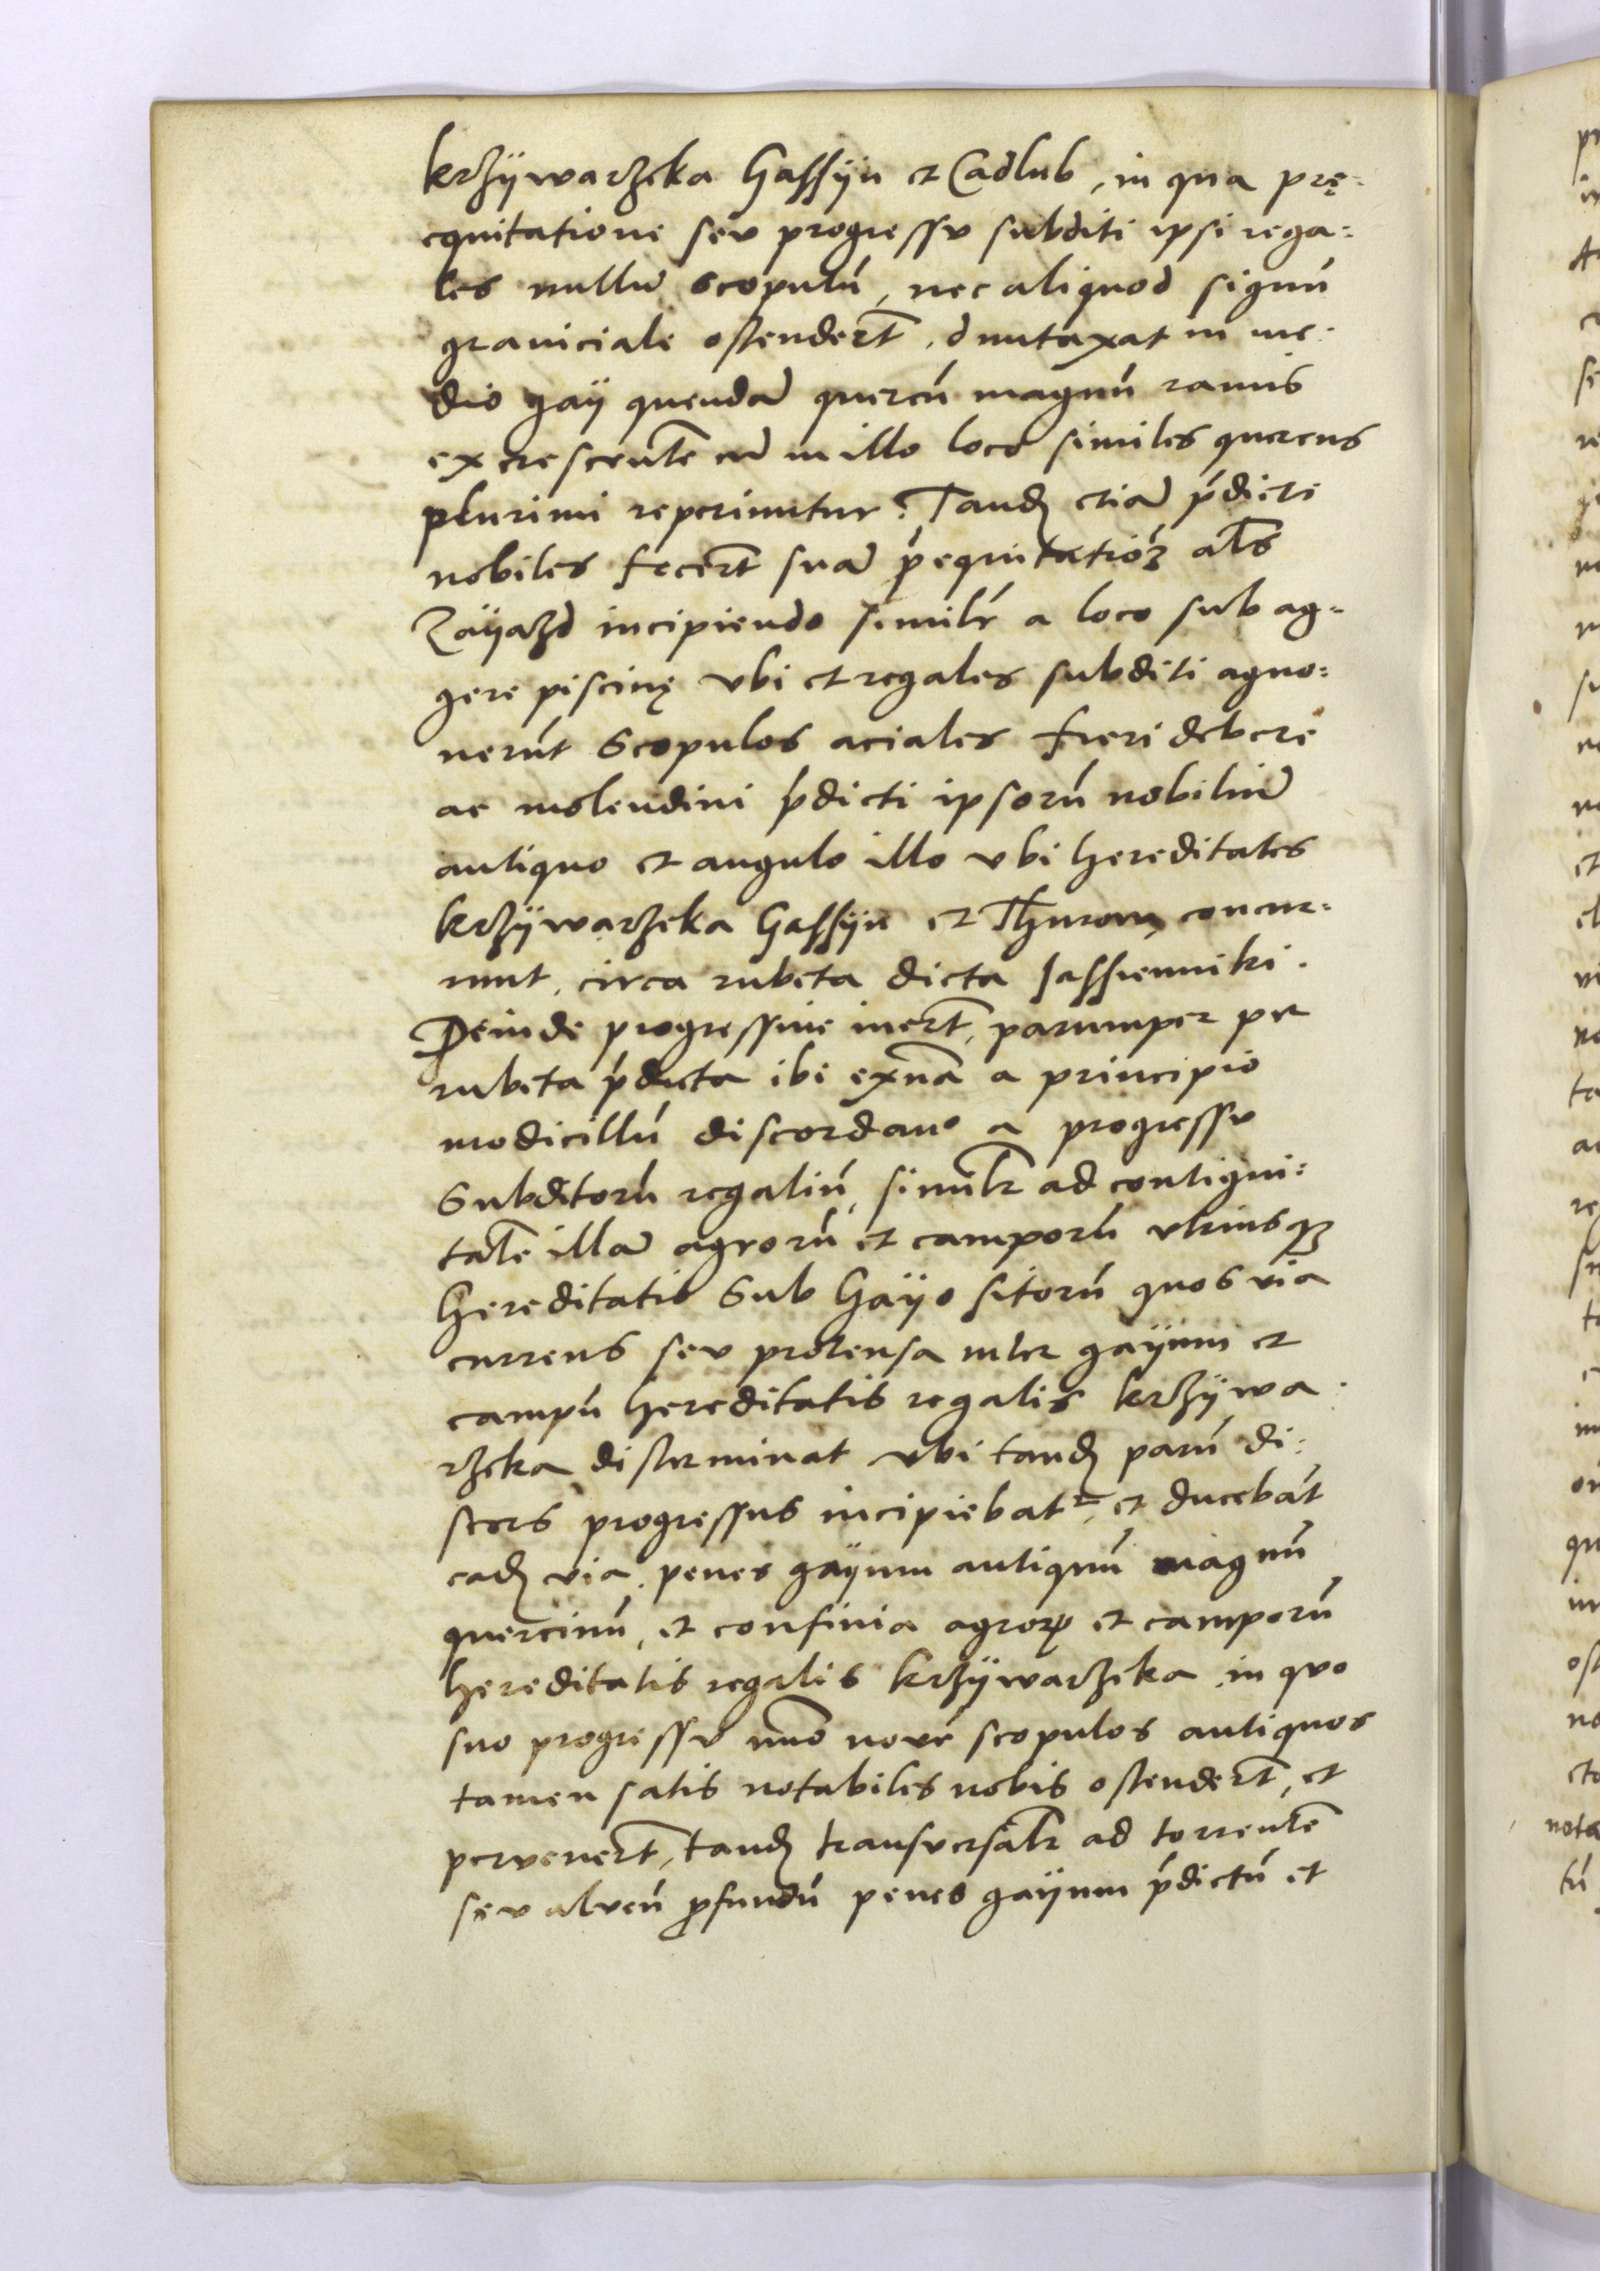 krzÿwarzeka Gassÿn et Cadlub, in qua prę-
equitatione seu progressu subditi ipsi rega:
les nullũ scopulũ, nec aliquod signũ
graniciale ostendert̃, duntaxat in me-
dio gaÿ quendã quercũ magnũ ramis
excrescentẽ cũ in illo loco similes quercus
plurimi reperiuntur. Tandẽ etiã p̃dicti
nobiles fecert̃ suã p̃equitatioꝫ al̃s
Zaÿazd incipiendo similr̃ a loco sub ag-
gere piscinę vbi et regales subditi agno:
uerũt Scopulos aciales fieri debere
ac molendini p̃dicti ipsorũ nobiliũ
antiquo et angulo illo vbi hereditates
krzÿwarzeka Gassÿn et Thurow, concur:
runt, circa rubeta dicta Jassienniki.
Deinde progressiue iuert̃, parumper per
rubeta p̃dicta ibi exnã a principio
modicillũ discordañ a progressu
Subditorũ regaliũ, similr̃ ad contigui:
tatẽ illã agrorũ et camporũ vtriusqꝫ
hereditatis Sub Gaÿo sitorũ quos via
currens seu protensa inter gaÿum et
campũ hereditatis regalis krzÿwa-
rzeka disterminat vbi tandẽ parũ di:
scors progressus incipiebatr, et ducebãt
eadẽ via penes gaÿum antiquũ magnũ
quercinũ, et confinia agroꝝ et camporũ
hereditatis regalis krzÿwarzeka, in quo
suo progressu nouẽ scopulos antiquos
tamen satis notabiles nobis ostendert̃, et
peruenert̃, tandẽ transuersalr̃ ad torrentẽ
seu alueũ ꝓfundũ penes gaÿum p̃dictũ et